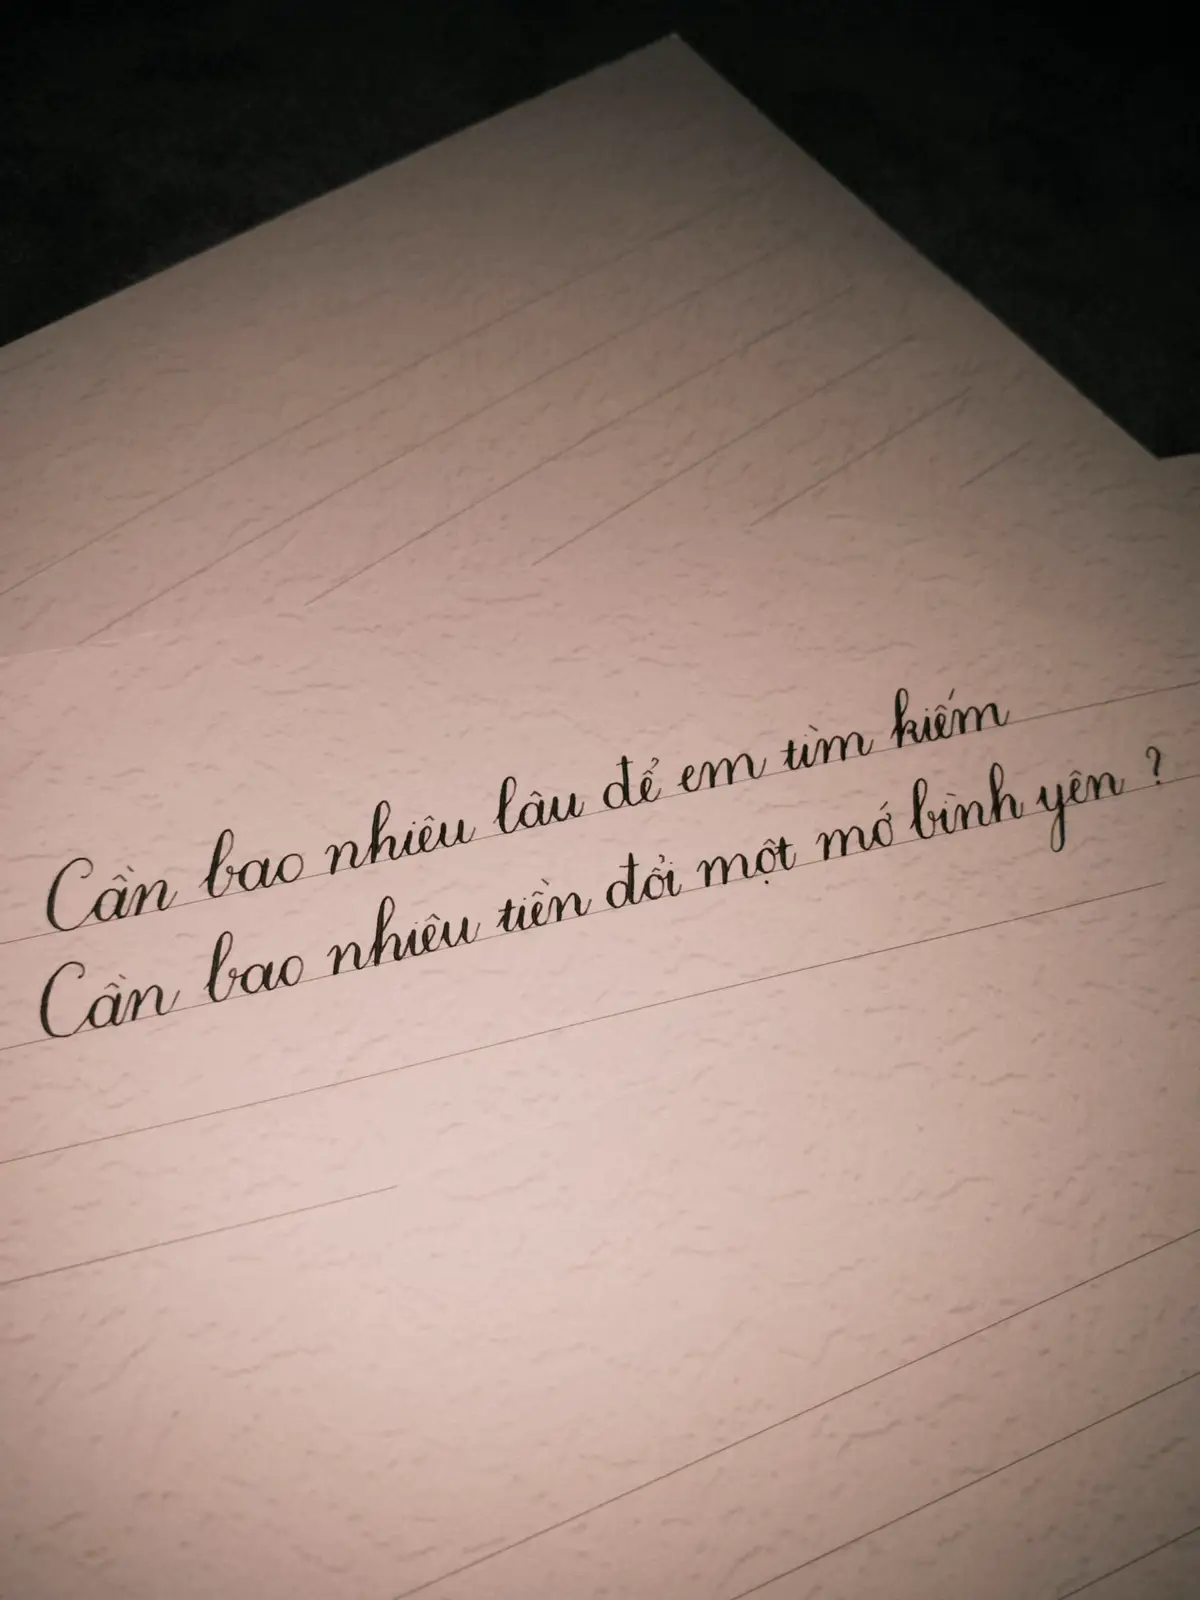 Cần bao nhiêu lâu để em tìm kiếm
Cần bao nhiêu tiền đổi một mớ bình yên ?